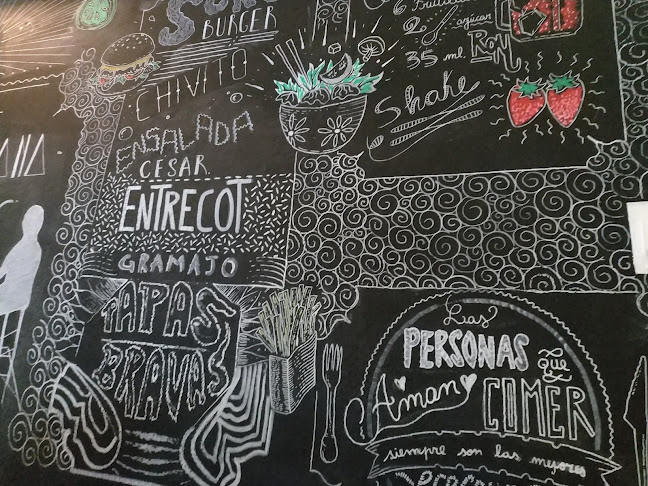 BURGER
CHIVITO
ENSALADA
CESAR
ENTRECOT
GRAMAJO
TAPAS
BRAVAS
6 Frutillas
2 azúcar
35 ml Ron
Shake
Las
PERSONAS
QUE
Aman
COMER
siempre son las mejores